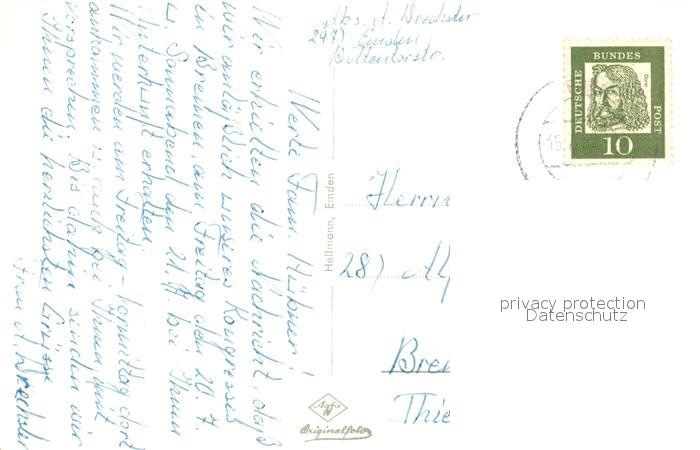 Abs. A. Drechsler
297) Emden
Boltentorstr.
Werte Fam. Hübner!
Wir erhielten die Nachricht, daß
wir anläßlich unseres Kongresses
in Bremen, am Freitag den 20. 7.
u. Sonnabend den 21. 7. bei Ihnen
Unterkunft erhalten.
Wir werden am Freitag-vormittag dort
ankommen u. auch bei Ihnen mit
vorsprechen. Bis dahin senden wir
Ihnen die herzlichsten Grüsse
Frau A. Drechsler
Hellmann, Emden
Herrn
28)
Bre
Thie
Agfa
Originalfoto
DEUTSCHE BUNDES POST
Dürer
10
15.
privacy protection
Datenschutz